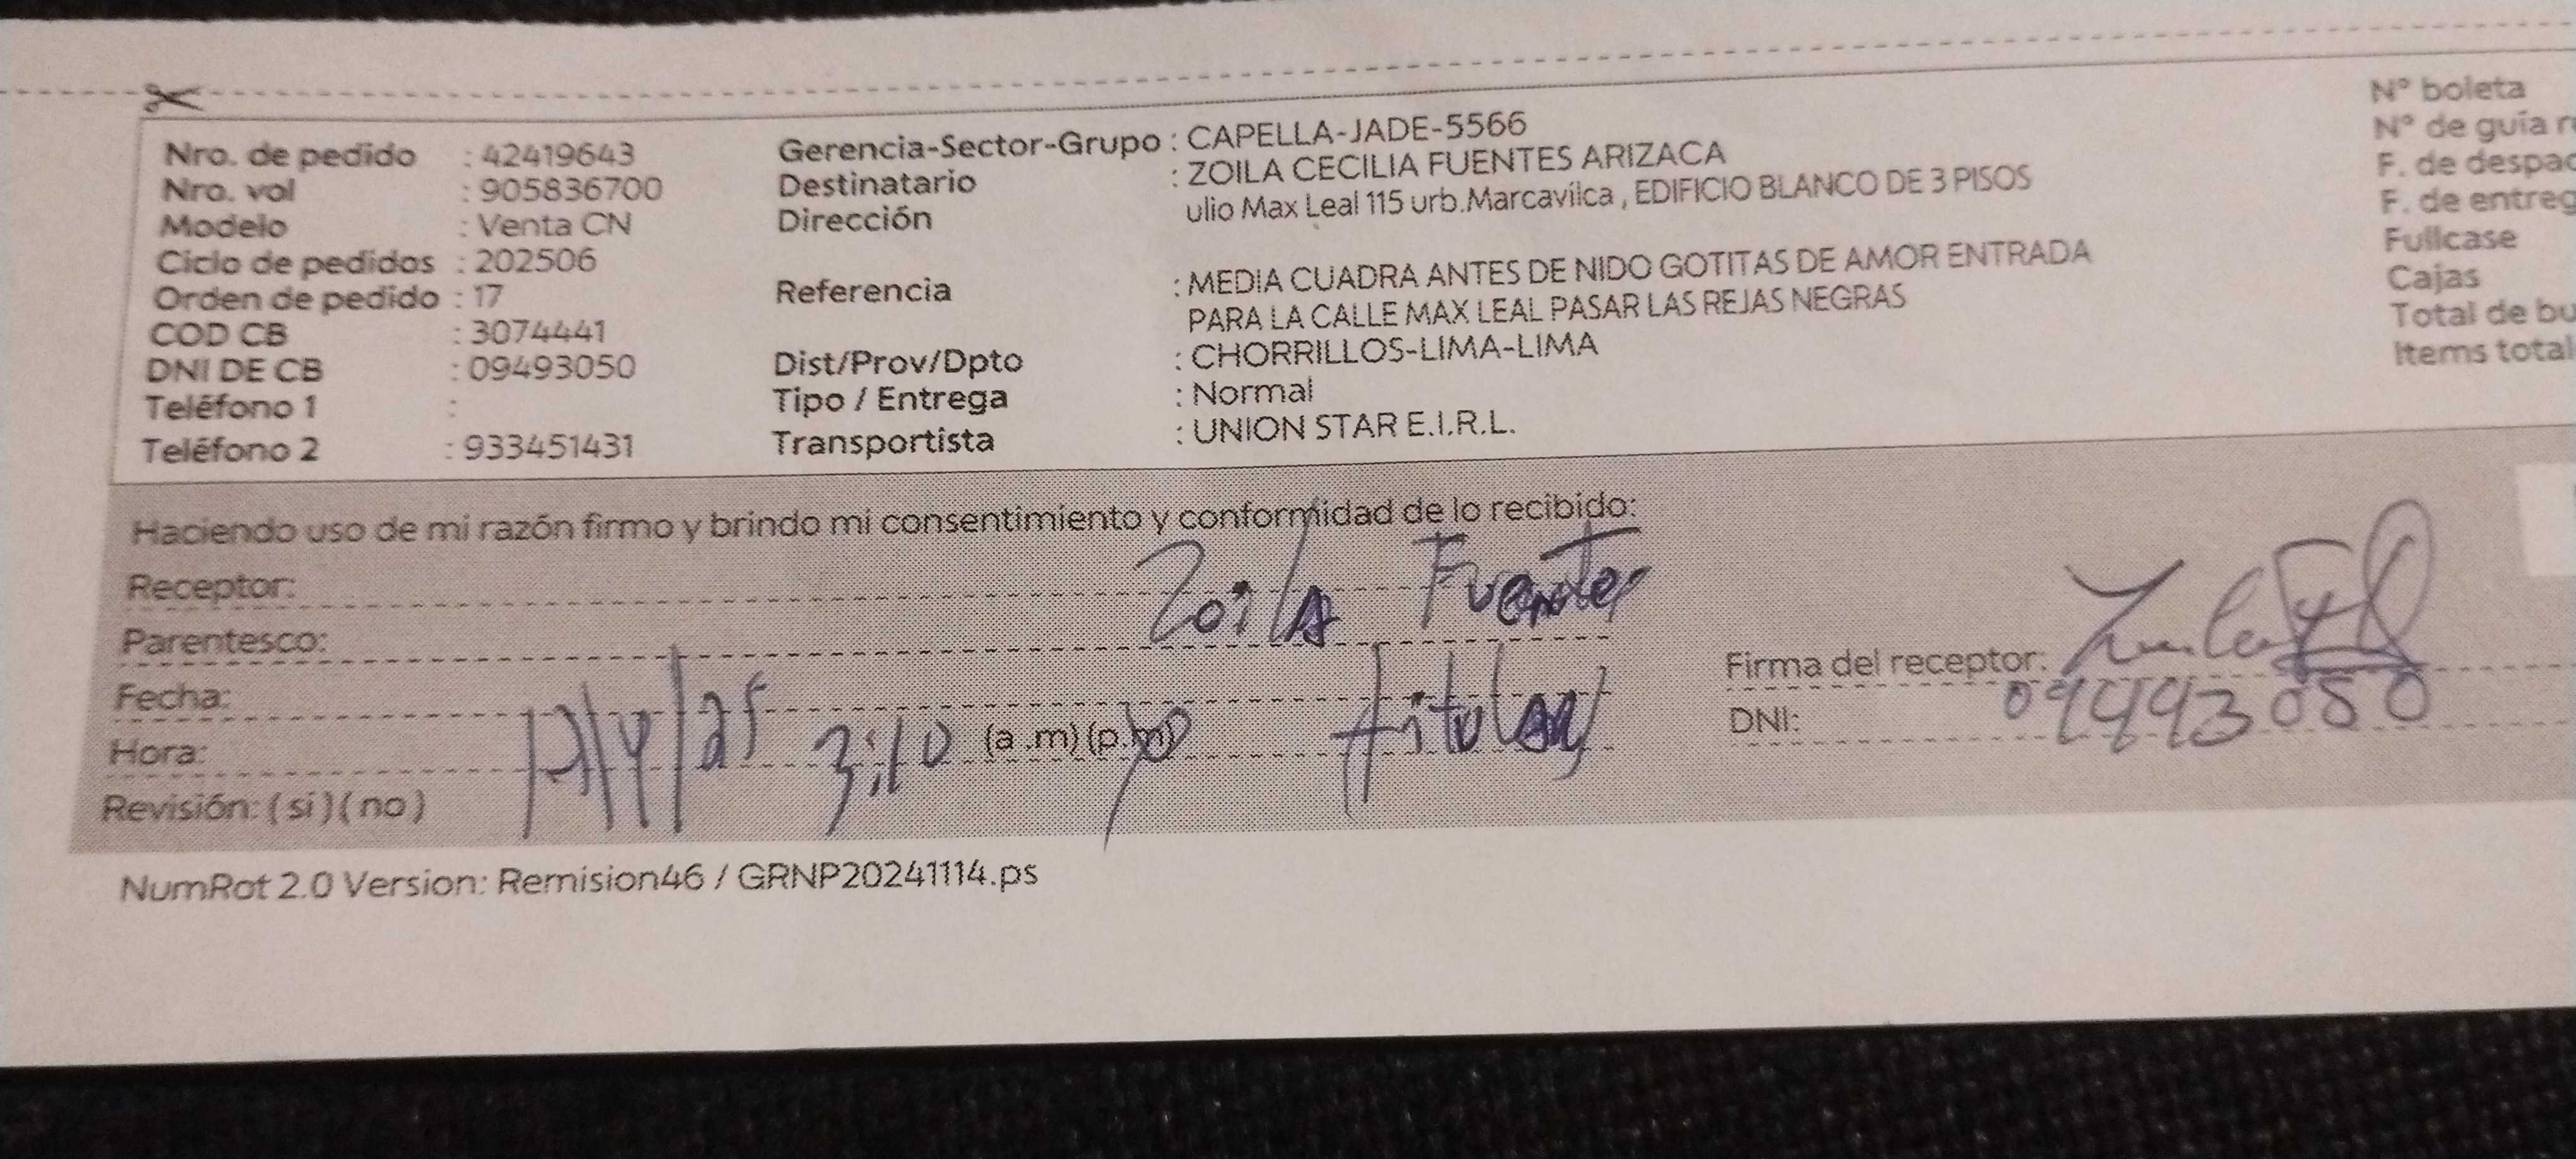 Nro. de pedido : 42419643
Nro. vol : 905836700
Modelo : Venta CN
Ciclo de pedidos : 202506
Orden de pedido : 17
COD CB : 3074441
DNI DE CB : 09493050
Teléfono 1 :
Teléfono 2 : 933451431
Gerencia-Sector-Grupo : CAPELLA-JADE-5566
Destinatario : ZOILA CECILIA FUENTES ARIZACA
Dirección ulio Max Leal 115 urb.Marcavilca , EDIFICIO BLANCO DE 3 PISOS
Referencia : MEDIA CUADRA ANTES DE NIDO GOTITAS DE AMOR ENTRADA
PARA LA CALLE MAX LEAL PASAR LAS REJAS NEGRAS
Dist/Prov/Dpto : CHORRILLOS-LIMA-LIMA
Tipo / Entrega : Normal
Transportista : UNION STAR E.I.R.L.
N° boleta
N° de guía
F. de despac
F. de entreg
Fullcase
Cajas
Total de bu
Items total
Haciendo uso de mi razón firmo y brindo mi consentimiento y conformidad de lo recibido:
Receptor: Zoila Fuentes
Parentesco: titular
Fecha:
Hora: 3:10 (a .m) (p.m)
Revisión: ( si ) ( no )
Firma del receptor:
DNI: 09493050
NumRot 2.0 Version: Remision46 / GRNP20241114.ps